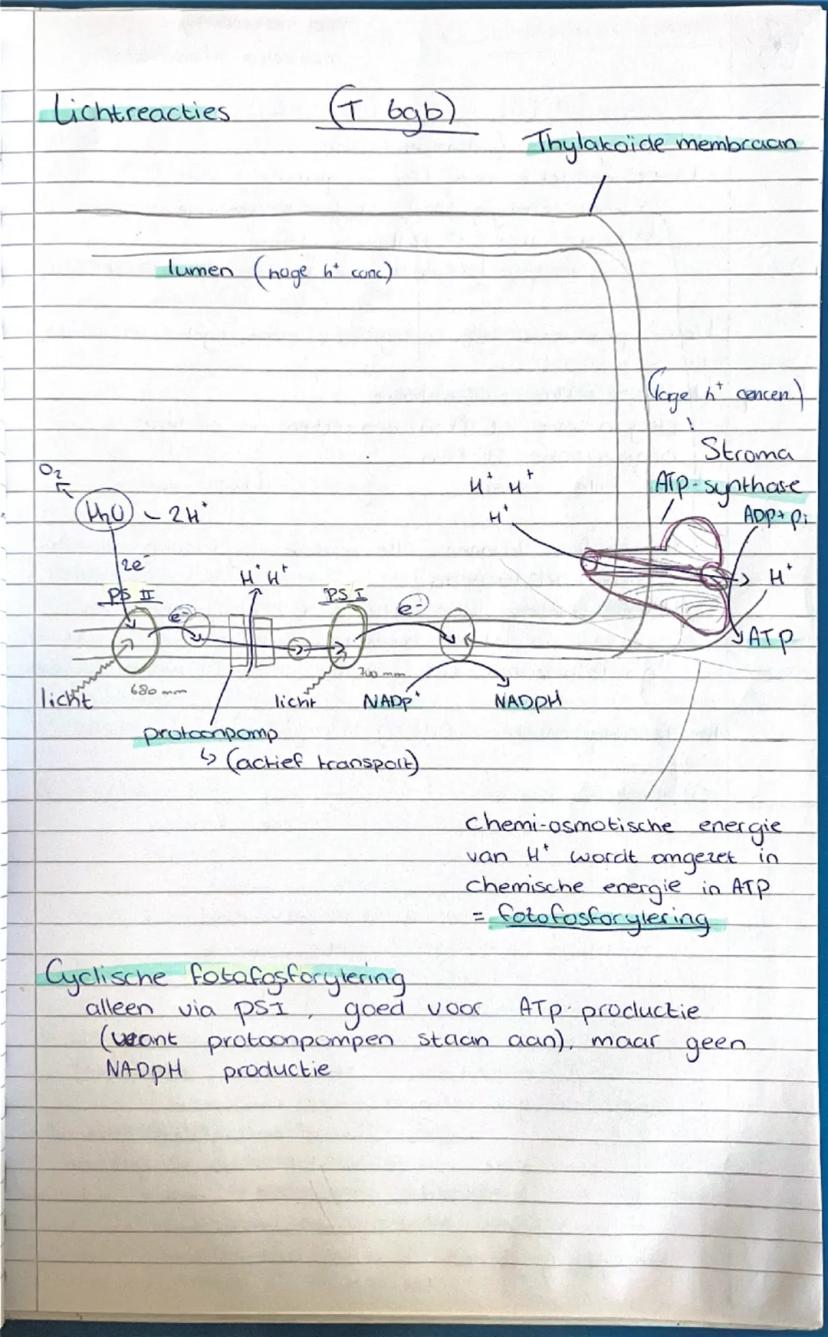 Lichtreacties (T 69b)
Thylakoïde membraan
lumen (hoge h⁺ conc)
(lage h⁺ concen.)
Stroma
ATP-synthase
ADP + Pi
H⁺ H⁺
H⁺
H⁺
ATP
O₂
H₂O - 2H⁺
2e⁻
H⁺ H⁺
PS II
e⁻
PS I
e⁻
licht
680 nm
licht
700 nm
NADP⁺
NADPH
protonpomp
↳ (actief transport)
Chemi-osmotische energie
van H⁺ wordt omgezet in
chemische energie in ATP
= fotofosforylering
Cyclische fotofosforylering
alleen via PSI, goed voor ATP productie
(want protoonpompen staan aan), maar geen
NADPH productie